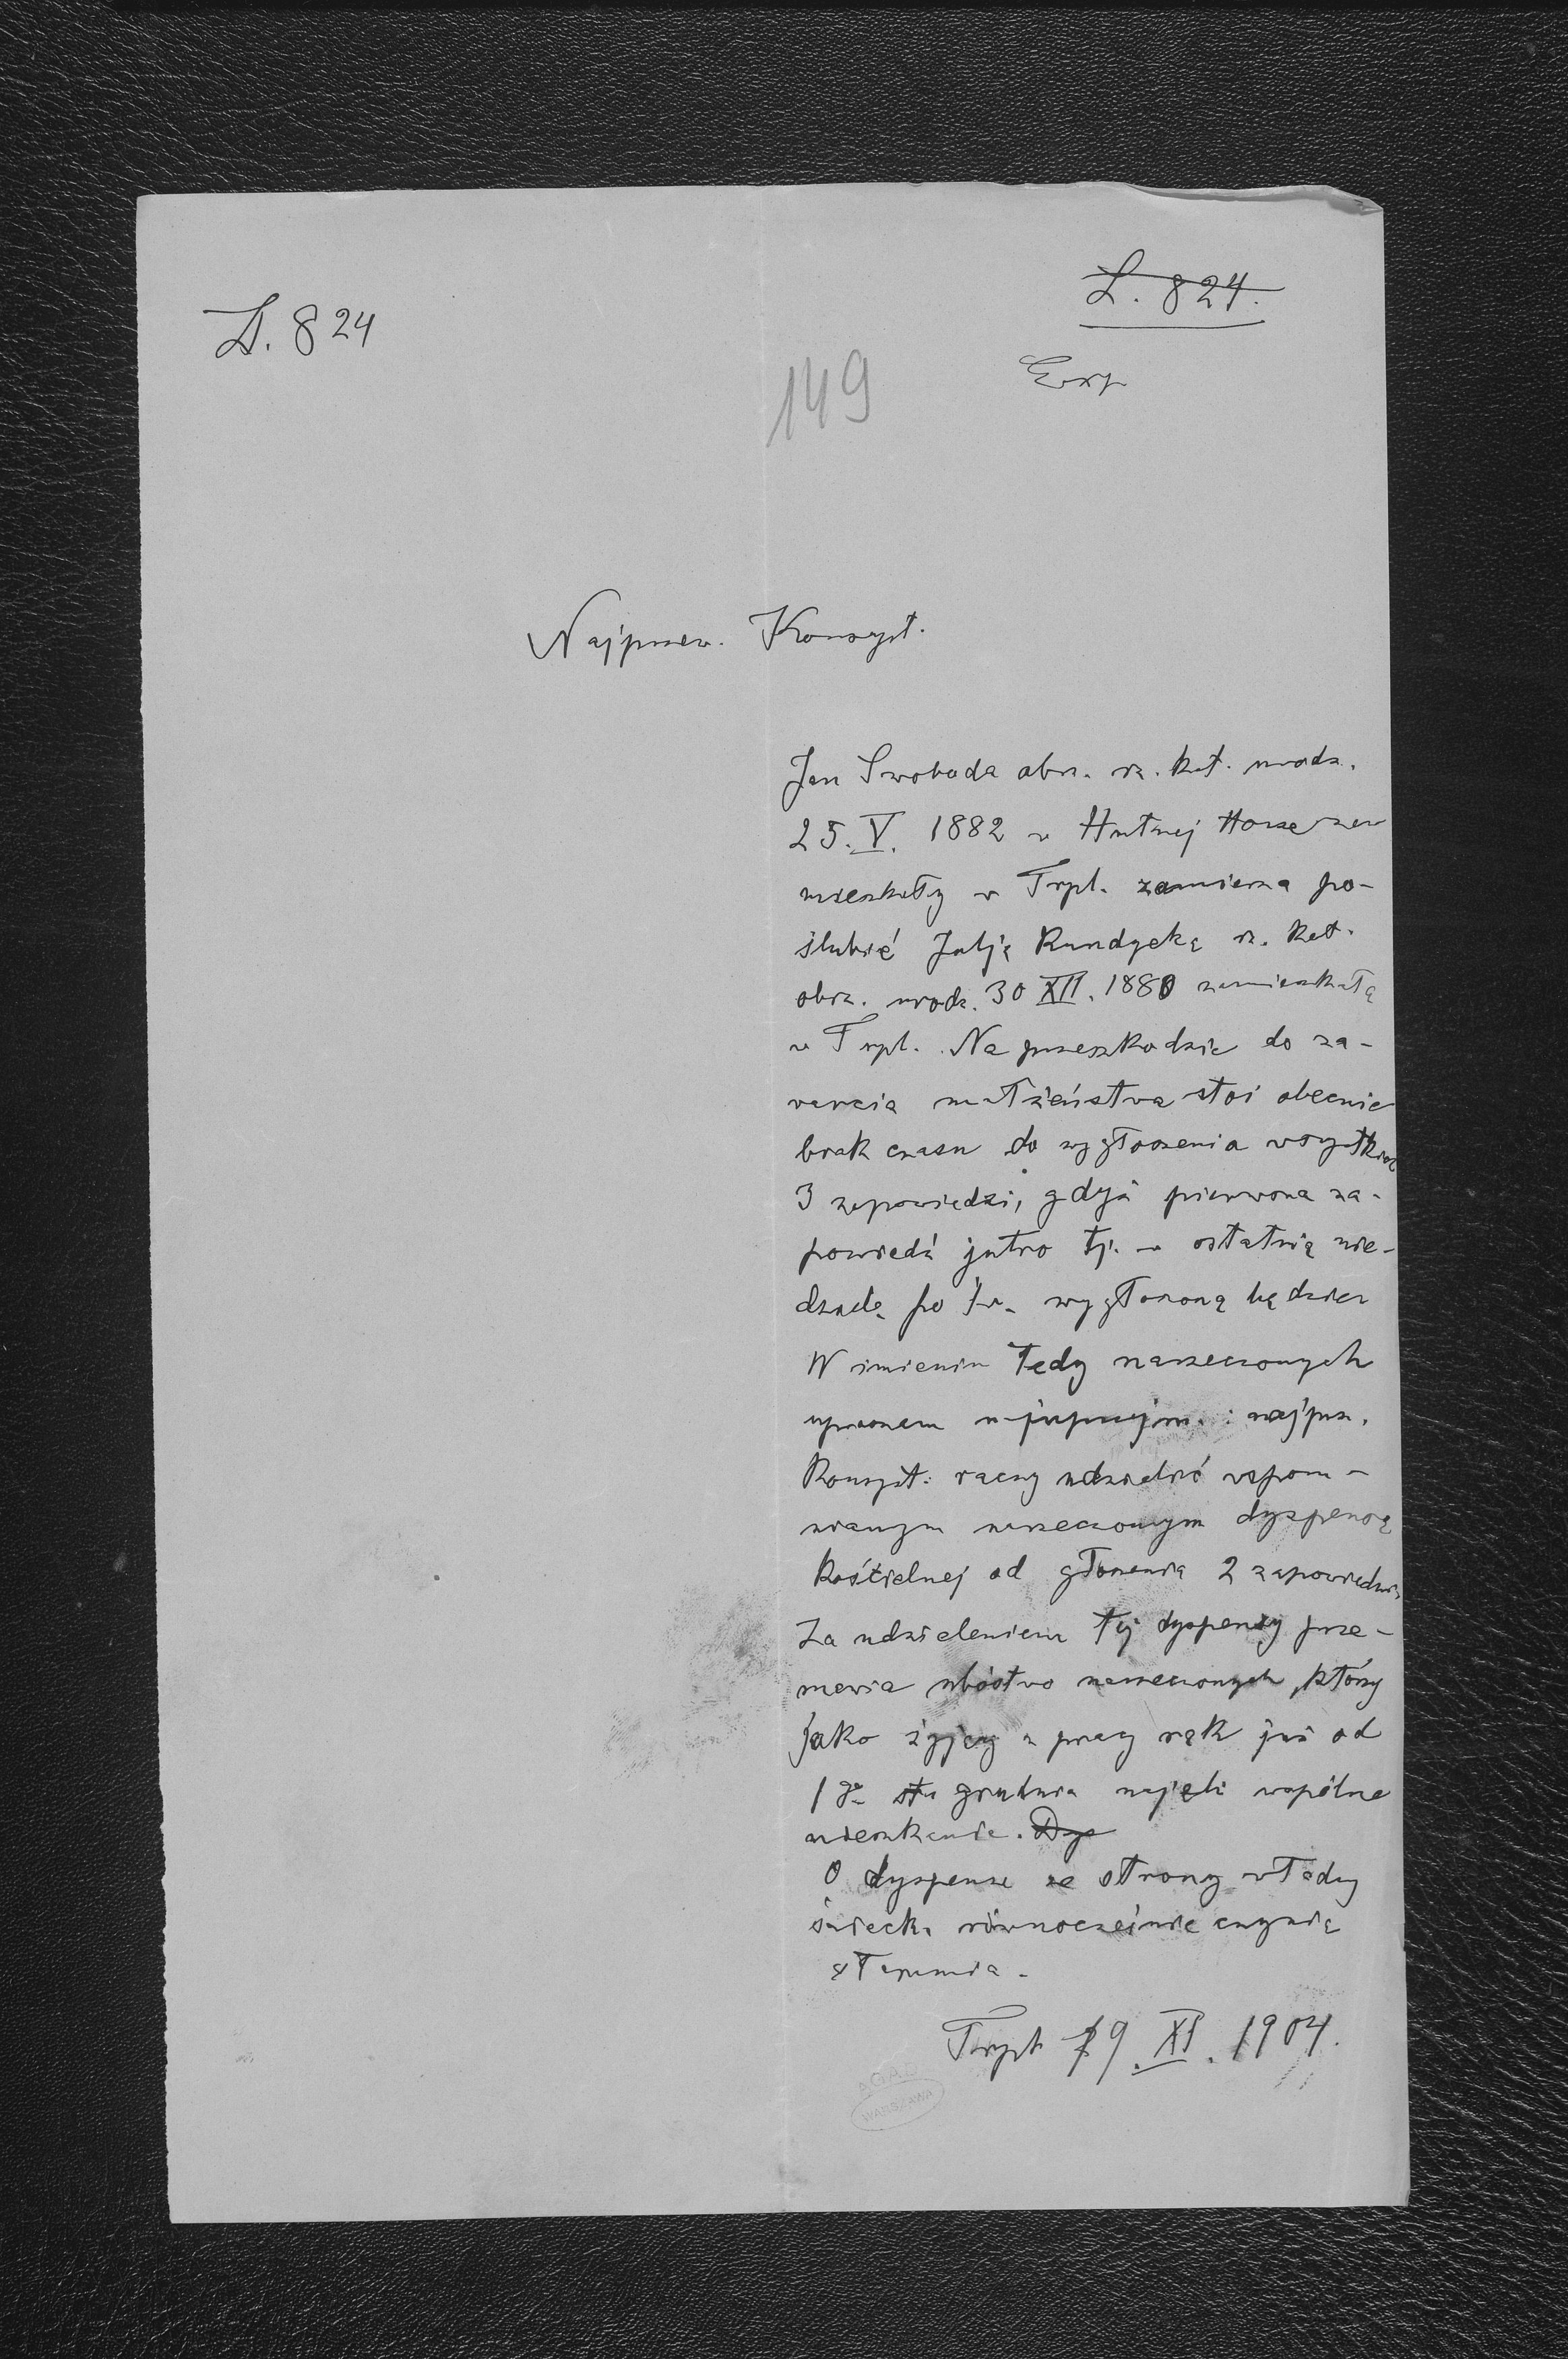 L. 824
L. 824.
149
Exp
Najprzew. Konsyst.
Jan Swoboda obrz. rz. kat. urodz.
25. V. 1882 w Hutnej Horze zam
mieszkały w Trpl. zamierza po-
ślubić Julję Rundycką rz. kat.
obrz. urodz. 30 XII. 1880 zamieszkałą
w Trpl. Na przeszkodzie do za-
warcia małżeństwa stoi obecnie
brak czasu do wygłoszenia wszystkich
3 zapowiedzi, gdyż pierwsza za-
powiedź jutro tj. w ostatnią nie-
dzielę po Św. wygłoszoną będzie
W imieniu tedy narzeczonych
upraszam najuprzejm. najprz.
Konsyst. raczy udzielić wspom-
nianym narzeczonym dyspensą
kościelnej od głoszenia 2 zapowiedzi
Za udzieleniem tej dyspensy prze-
mawia ubóstwo narzeczonych, którzy
jako żyjący z pracy rąk już od
1go grudnia najęli wspólne
mieszkanie. Dys
O dyspensę ze strony władzy
świeck. równocześnie czynię
starania.
Trpl 19 XI. 1904.
AGAD
WARSZAWA